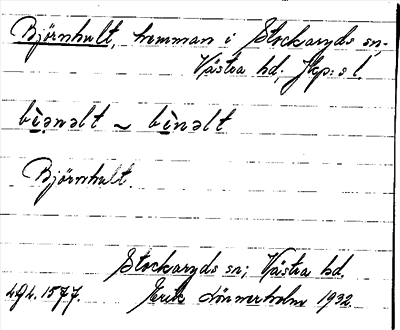 Björnhult, hemman i Stockaryds sn,
Västra hd, Jkp:s l.
bìənəlt ~ bìnəlt
Björnhult.
Stockaryds sn; Västra hd.
Erik Lönnerholm 1932.